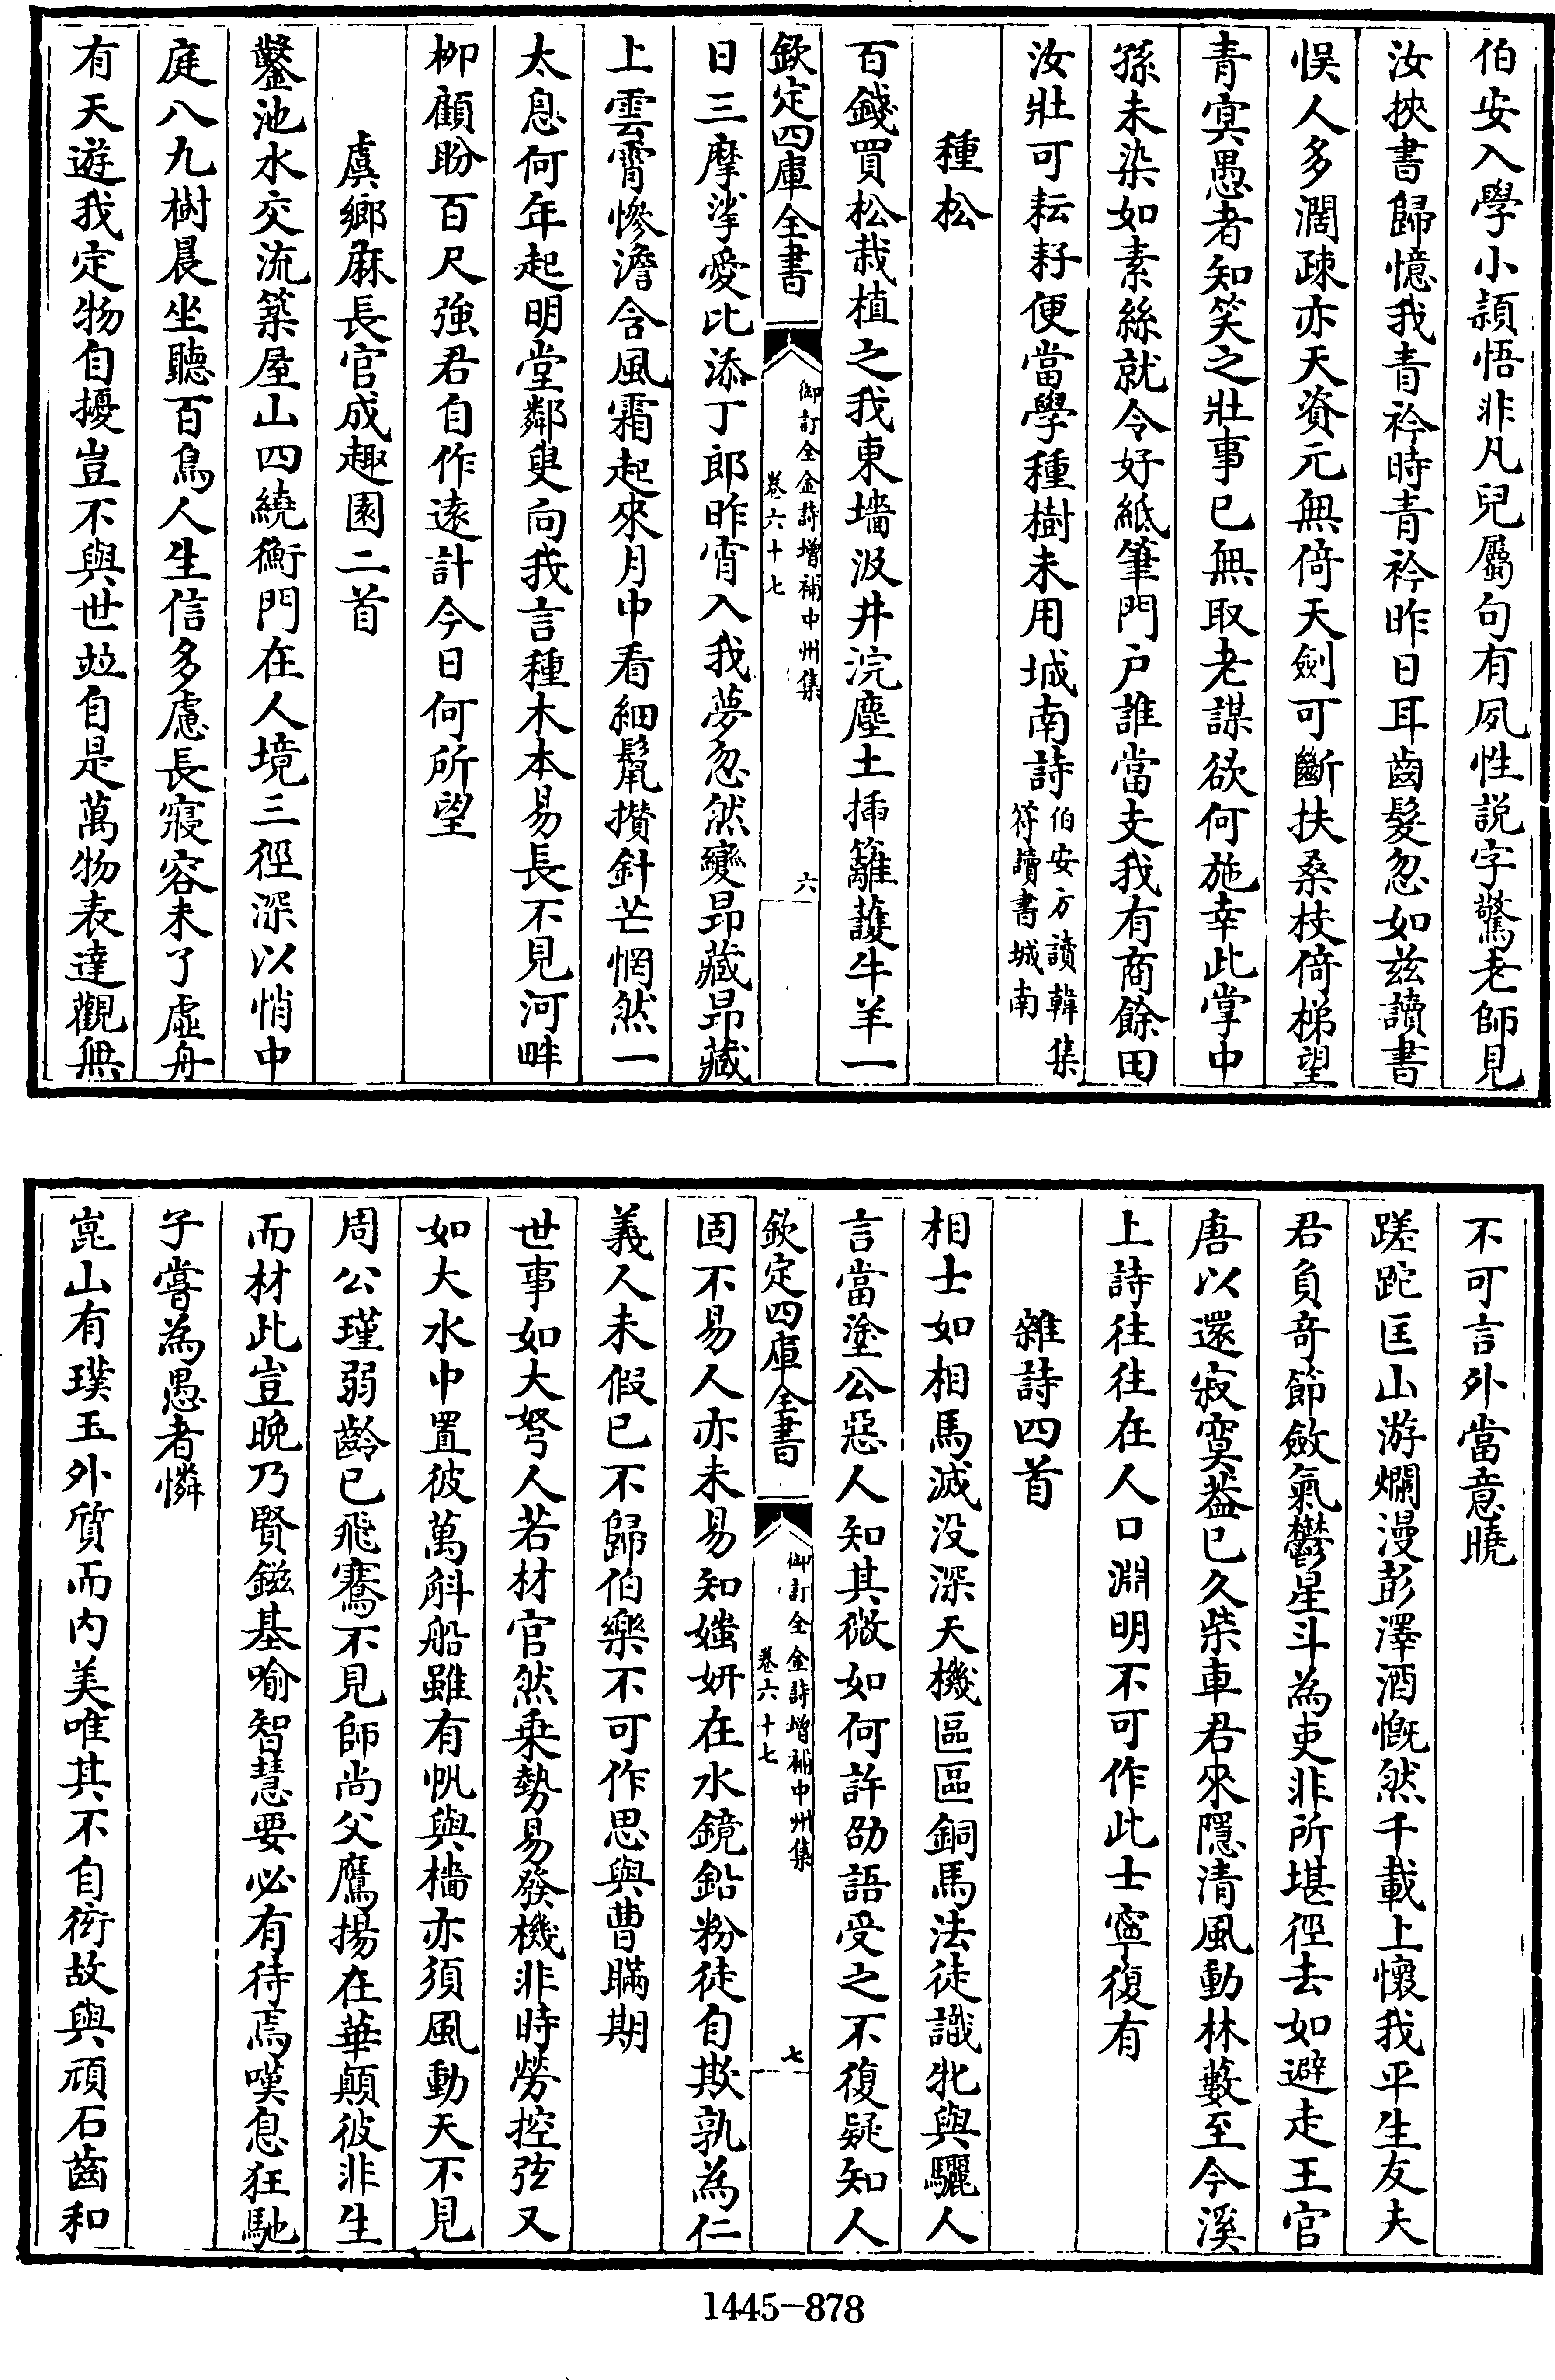 伯安入學小頴悟非凡兒屬句有夙性説字驚老師見
汝挾書歸憶我青衿時青衿昨日耳齒髮忽如兹讀書
悞人多濶疎亦天資元無倚天劍可斷扶桑枝倚梯望
青㝠愚者知笑之壯事已無取老謀欲何施幸此掌中
孫未染如素絲就令好紙筆門户誰當支我有商餘田
汝壯可耘耔便當學種樹未用城南詩伯安方讀韓集
符讀書城南
種松
百錢買松栽植之我東墻汲井浣塵土挿籬護牛羊一
欽定四庫全書
御訂全金詩增補中州集
卷六十七
六
日三摩挲愛比添丁郎昨宵入我夢忽然變昻藏昻藏
上雲霄慘澹含風霜起來月中看細鬛攅針芒惘然一
太息何年起明堂鄰叟向我言種木本易長不見河畔
柳顧盼百尺強君自作逺計今日何所望
虞鄉麻長官成趣園二首
鑿池水交流築屋山四繞衡門在人境三徑深以悄中
庭八九樹晨坐聽百鳥人生信多慮長寢容未了虛舟
有天遊我定物自擾豈不與世竝自是萬物表達觀無
不可言外當意曉
蹉跎匡山游爛漫彭澤酒慨然千載上懷我平生友夫
君負竒節斂氣鬱星斗為吏非所堪徑去如避走王官
唐以還寂寞葢已久柴車君來隱清風動林藪至今溪
上詩往往在人口淵明不可作此士寧復有
雜詩四首
相士如相馬滅没深天機區區銅馬法徒識牝與驪人
言當塗公惡人知其微如何許劭語受之不復疑知人
欽定四庫全書
御訂全金詩增補中州集
卷六十七
七
固不易人亦未易知媸妍在水鏡鉛粉徒自欺孰為仁
義人未假已不歸伯樂不可作思與曹瞞期
世事如大弩人若材官然乗勢易發機非時勞控弦又
如大水中置彼萬斛船雖有帆與檣亦須風動天不見
周公瑾弱齡已飛騫不見師尚父鷹揚在華顛彼非生
而材此豈晚乃賢鎡基喻智慧要必有待焉嘆息狂馳
子嘗為愚者憐
崑山有璞玉外質而内美唯其不自衒故與頑石齒和
1445-878